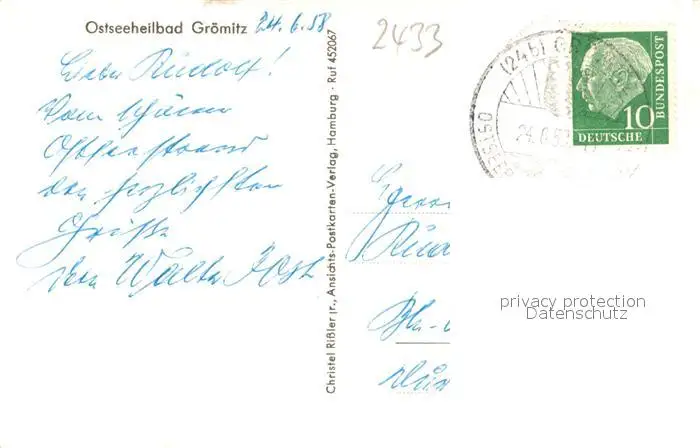 Ostseeheilbad Grömitz 24.6.58
2433
Lieber Rudolf!
Vom schönen
Ostseestrand
den herzlichsten
Grüße
Dein Walter
Christel Rißler jr., Ansichts-Postkarten-Verlag, Hamburg · Ruf 452067
(24b)
OSTSEE
24.6.58
10
DEUTSCHE
BUNDESPOST
Herrn
privacy protection
Datenschutz